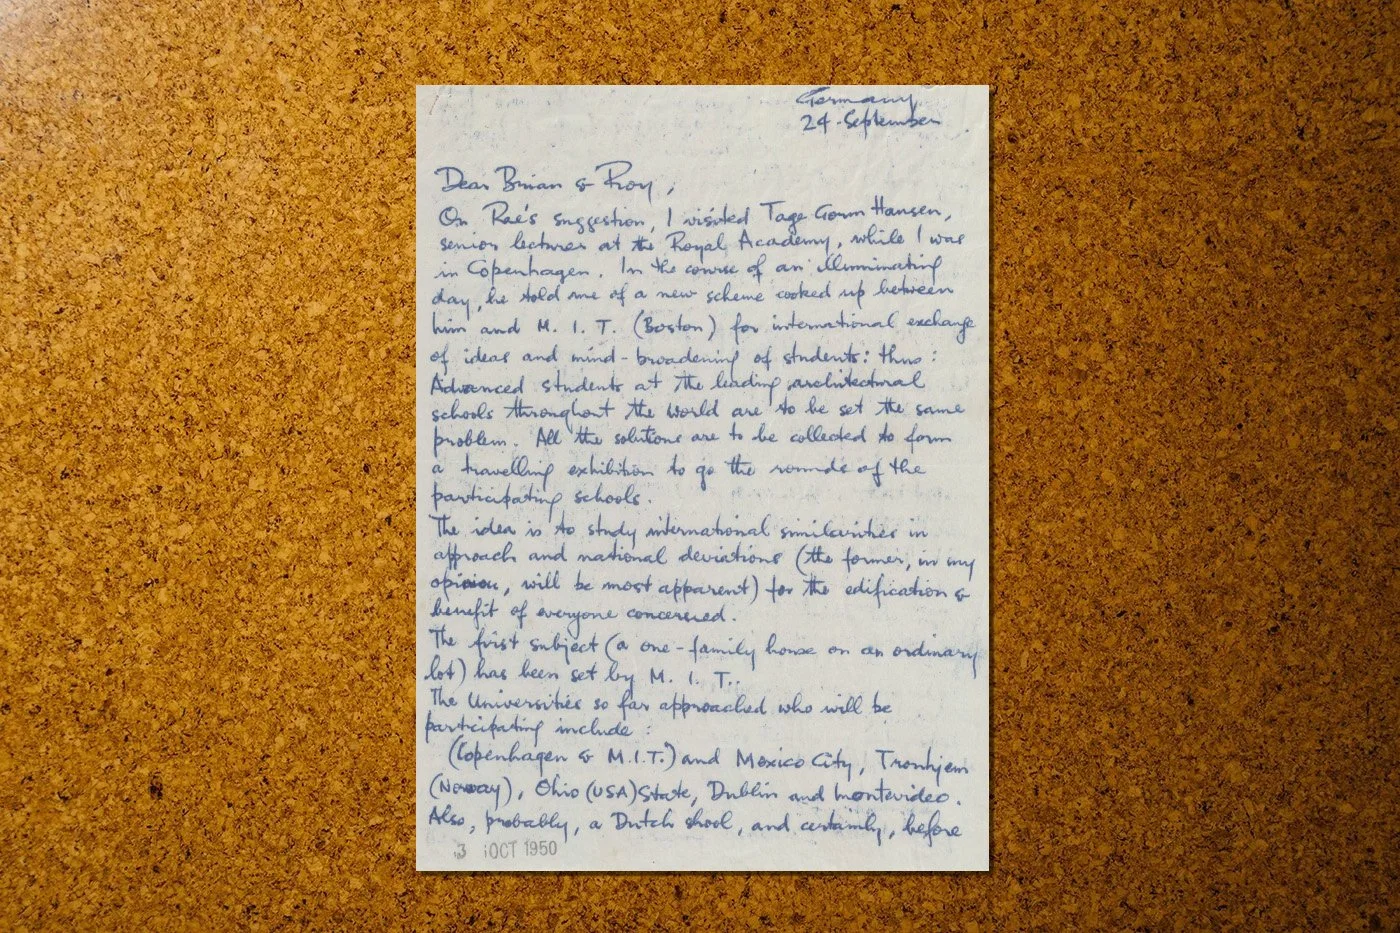 Germany
24-September
Dear Brian & Roy,
On Rae's suggestion, I visited Tage Gorm Hansen,
senior lecturer at the Royal Academy, while I was
in Copenhagen. In the course of an illuminating
day, he told me of a new scheme cooked up between
him and M. I. T. (Boston) for international exchange
of ideas and mind-broadening of students: thus:
Advanced students at the leading architectural
schools throughout the world are to be set the same
problem. All the solutions are to be collected to form
a travelling exhibition to go the rounds of the
participating schools.
The idea is to study international similarities in
approach and national deviations (the former, in my
opinion, will be most apparent) for the edification &
benefit of everyone concerned.
The first subject (a one-family house on an ordinary
lot) has been set by M. I. T..
The Universities so far approached who will be
participating include:
(Copenhagen & M.I.T.) and Mexico City, Tronhjem
(Norway), Ohio (USA) State, Dublin and Montevideo.
Also, probably, a Dutch shool, and certainly, before
3 OCT 1950